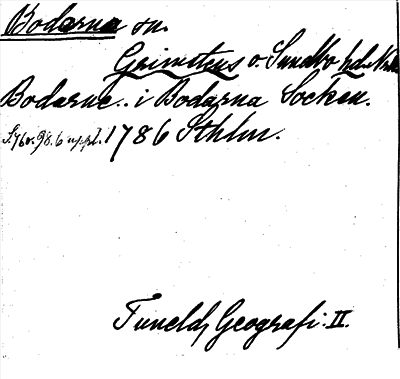 Bodarna sn.
Grimstens o. Sundbo hd. Nerike
Bodarne. i Bodarna Socken.
S. 76 o. 98. 6 uppl. 1786 Sthlm.
Tunelds Geografi. II.